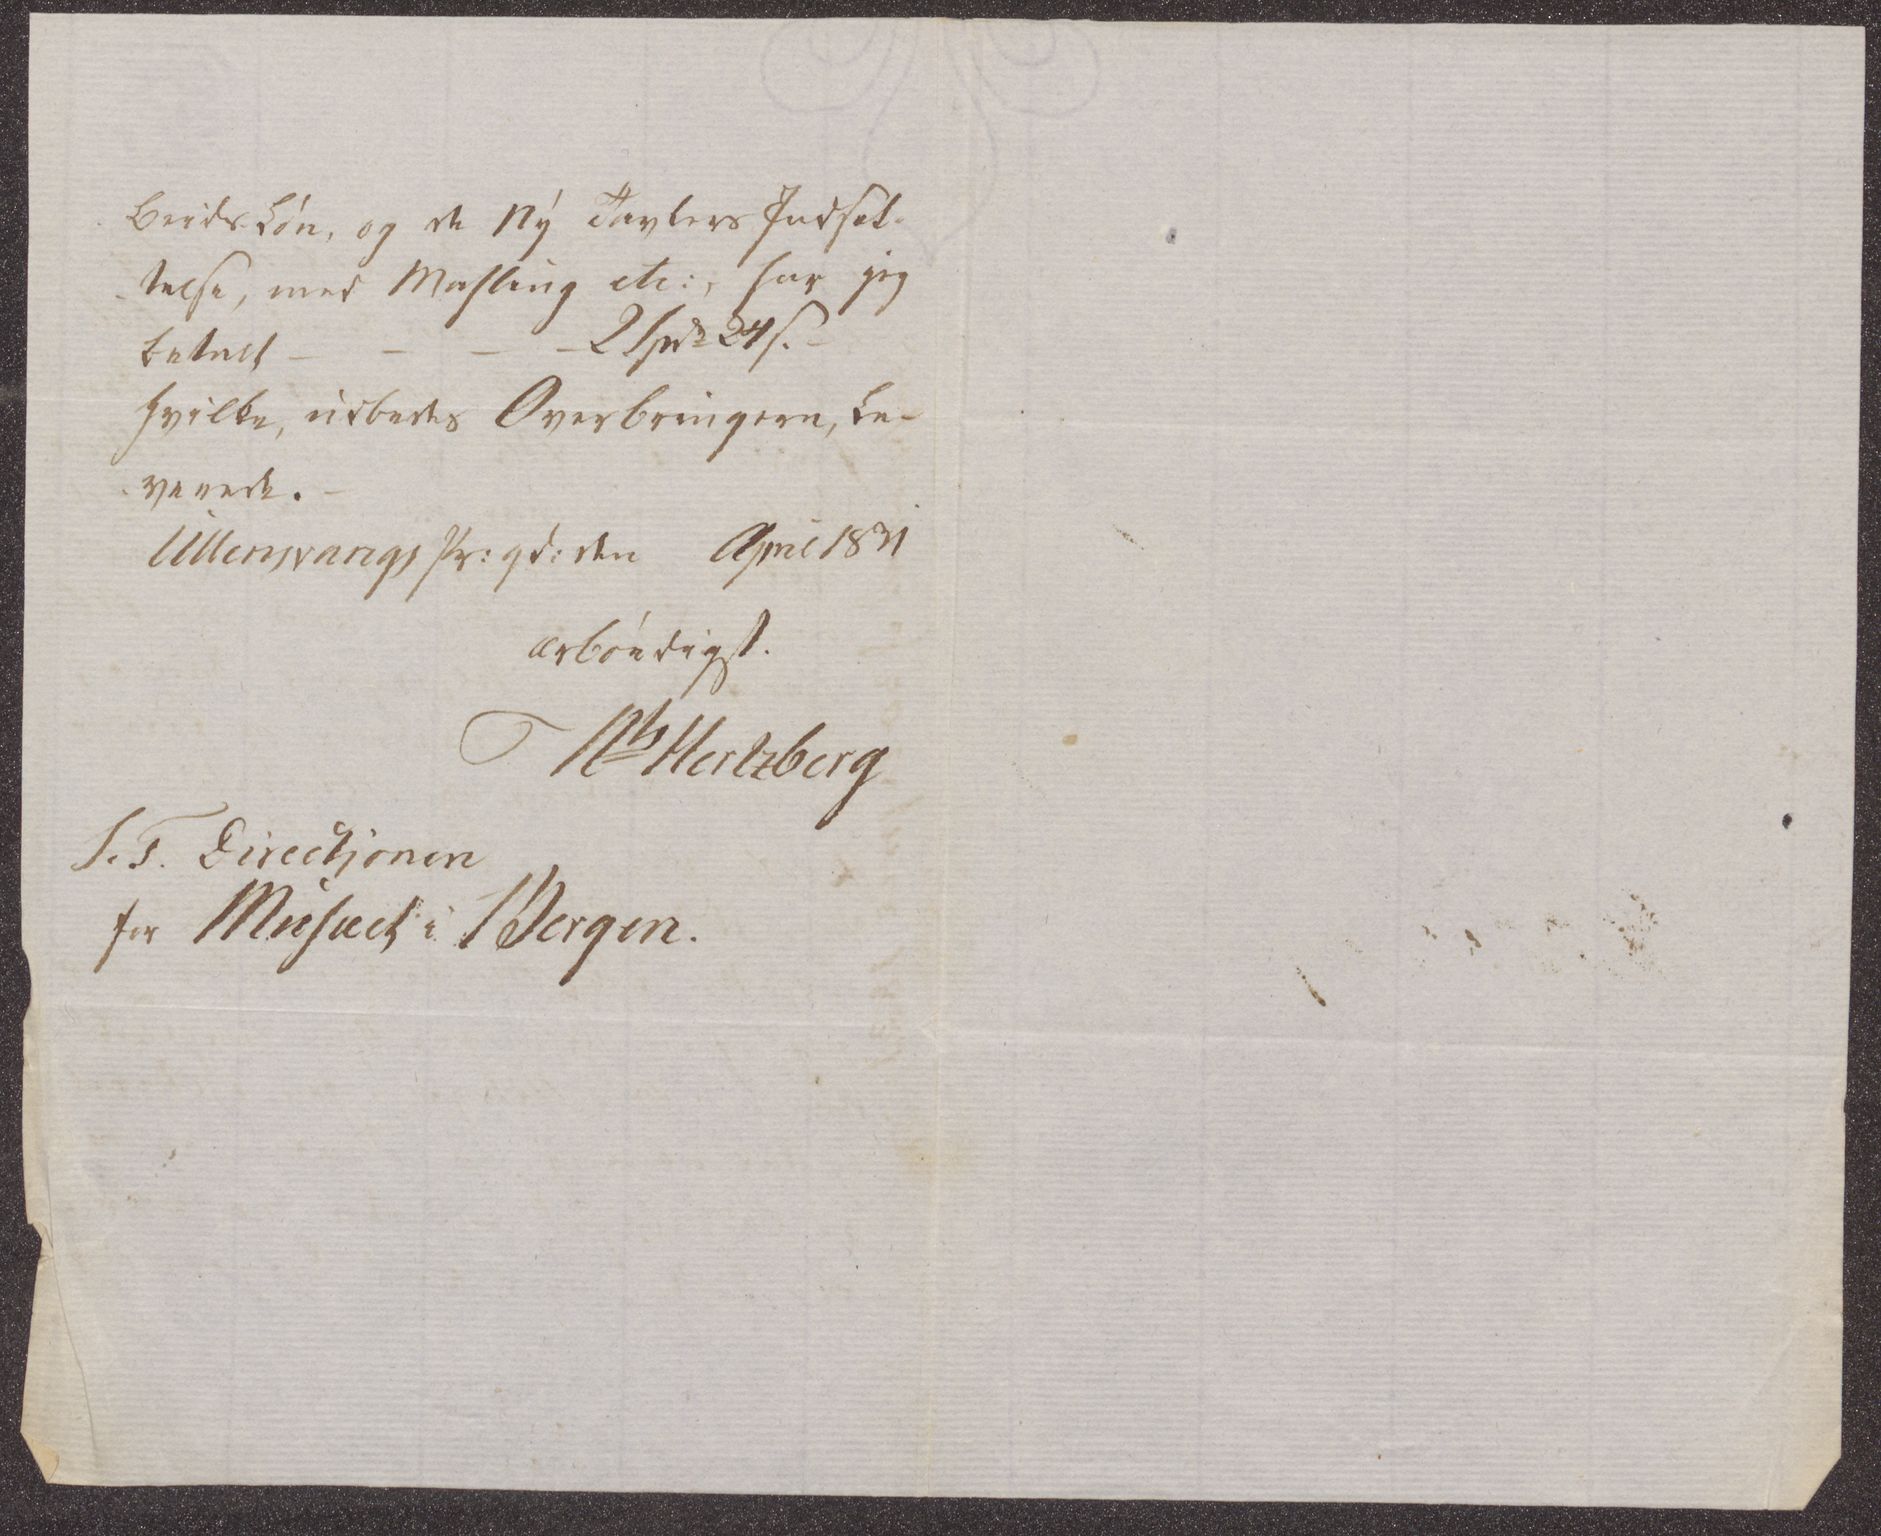 beidsløn, og de Ny Tavlers Indsæt-
telse, med Mahling etc:, har jeg
betalt - - - - 2 Spd 24 s. -
hvilke, udbedes Overbringeren, le-
verede. -
Ullensvangs Pr:gd: den April 1831
ærbødigst.
Ns Hertzberg
S. T. Directjonen
for Musæet i Bergen.